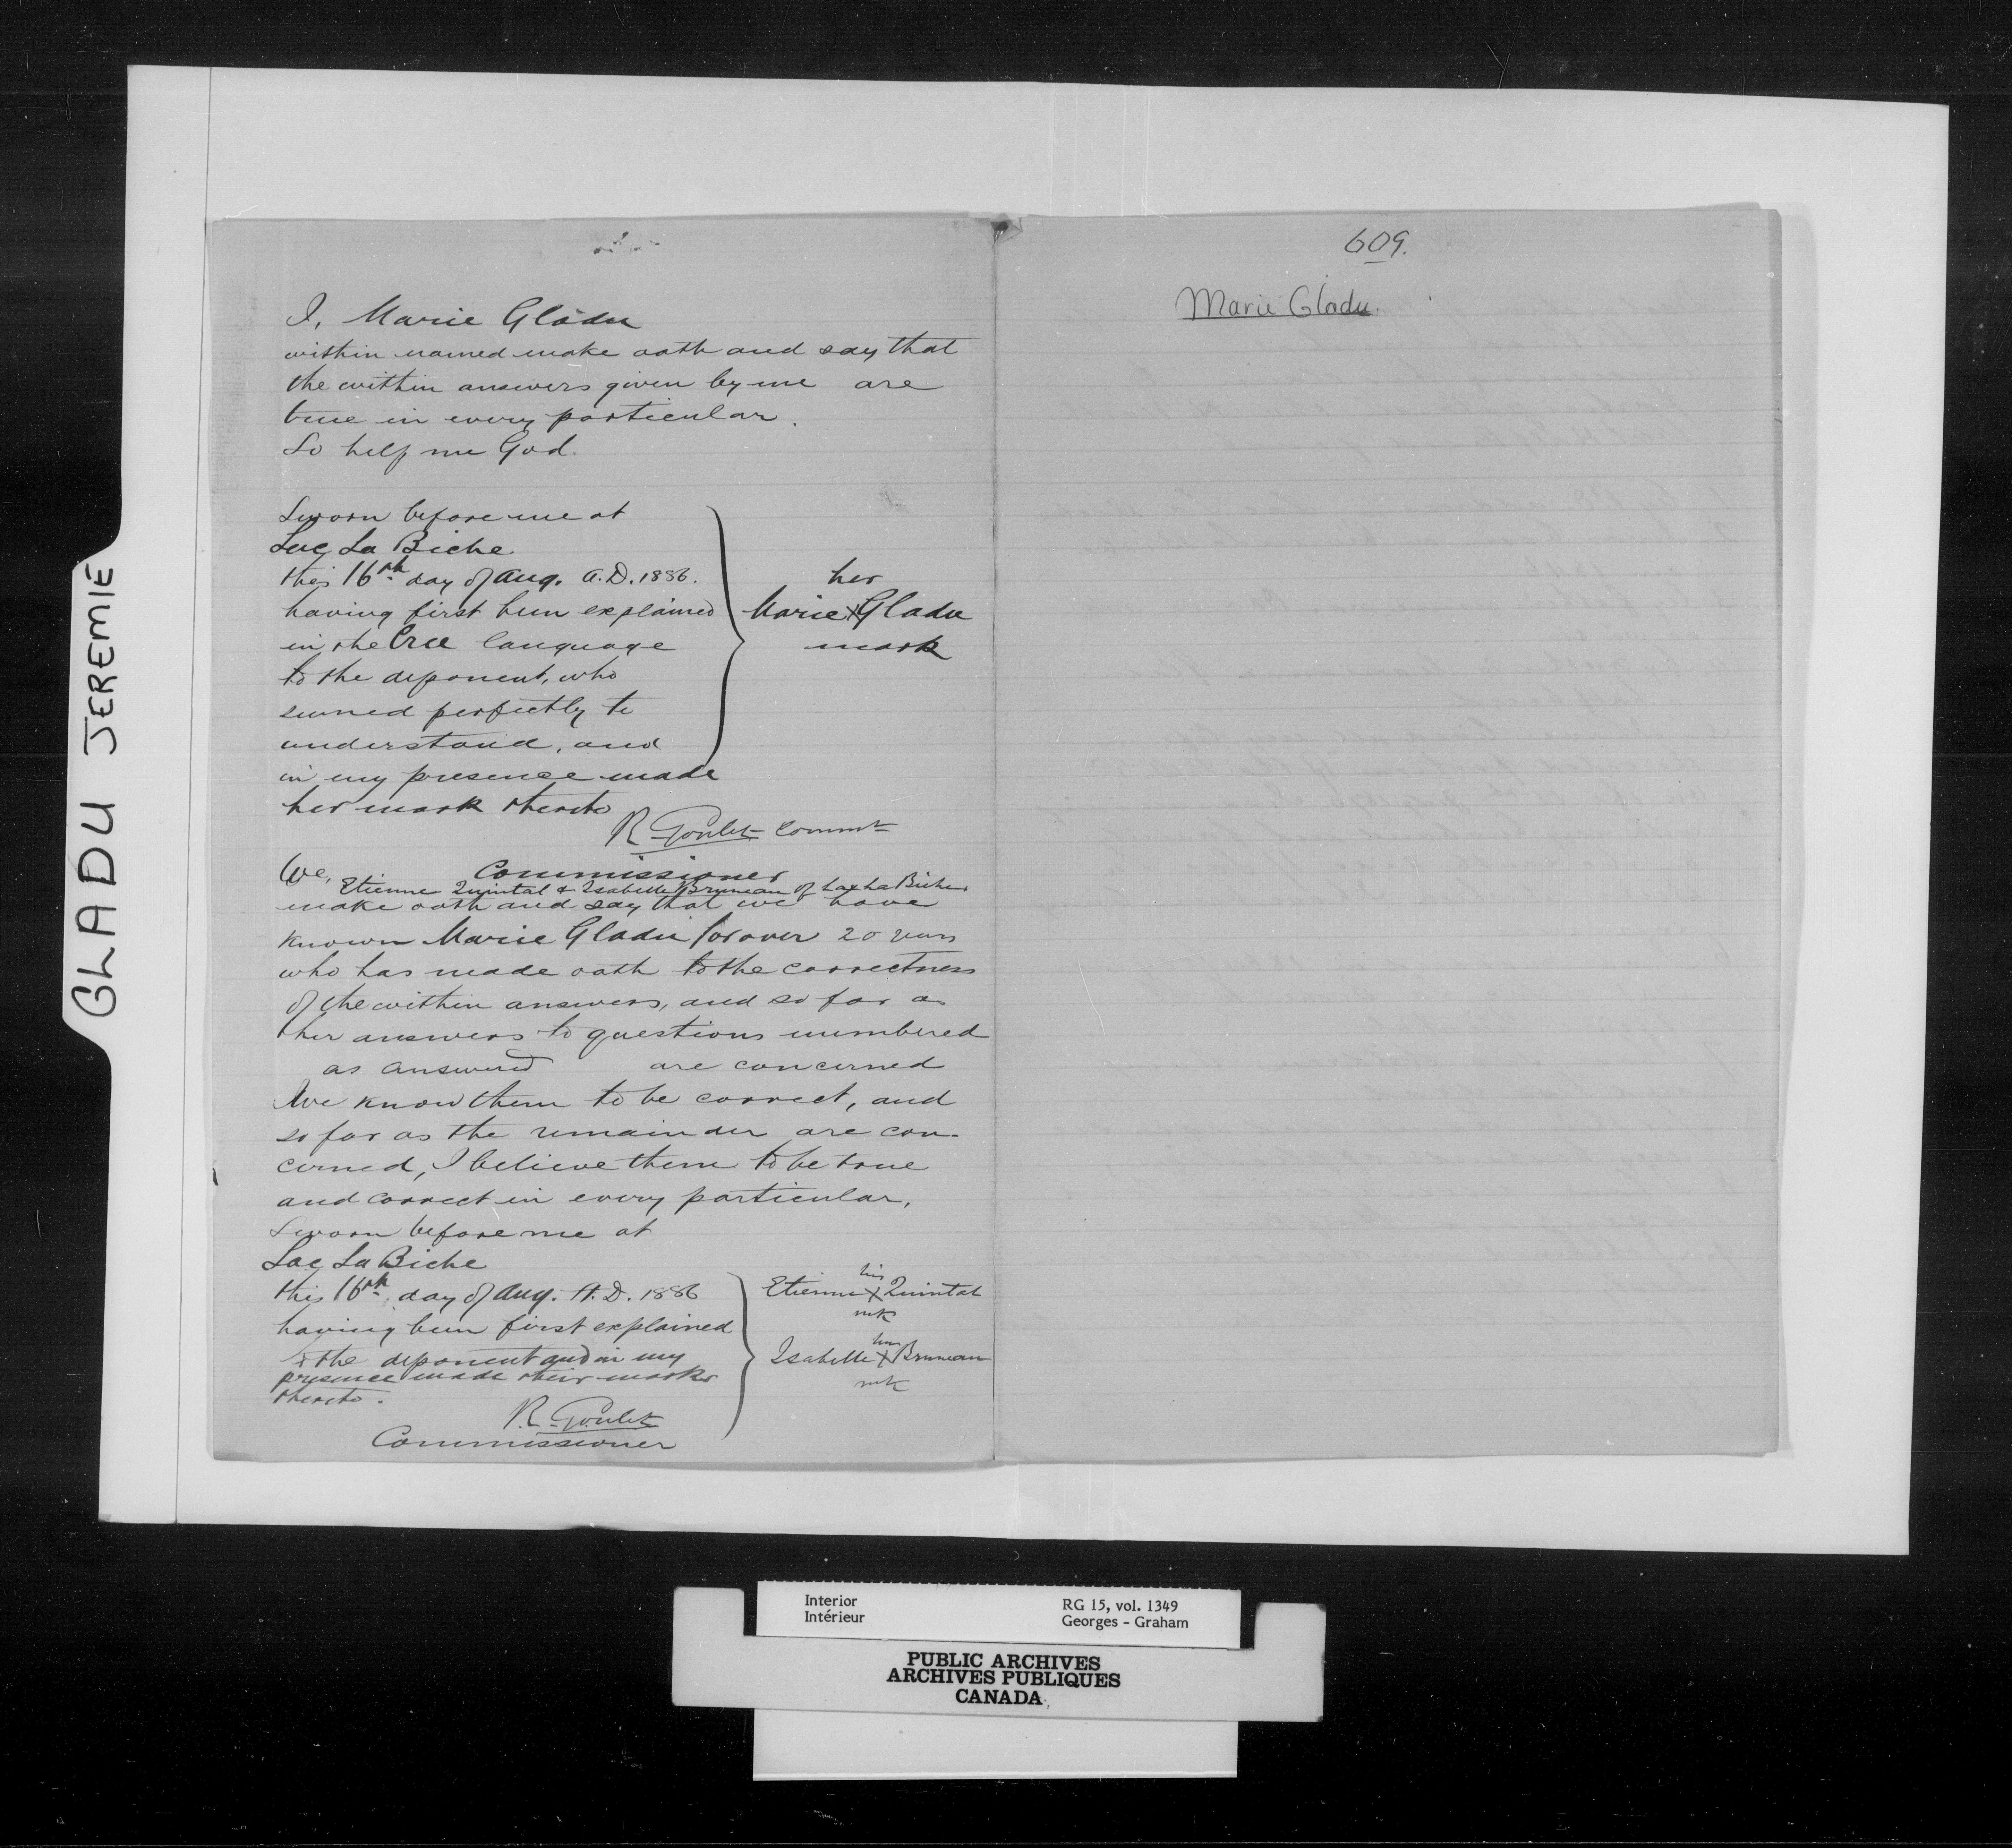 GLADU JEREMIE
I, Marie Gladu
within named make oath and say that
the within answers given by me are
true in every particular.
So help me God.
Sworn before me at
Lac La Biche
this 16th day of Aug. A.D. 1886.
having first been explained
in the Cree language
to the deponent, who
seemed perfectly to
understand, and
in my presence made
her mark thereto
her
Marie X Gladu
mark
R. Goulet Commr
Commissioner
We, Etienne Quintal & Isabelle Bruneau of Lac La Biche
make oath and say that we have
known Marie Gladu for over 20 years
who has made oath to the correctness
of the within answers, and so far as
her answers to questions numbered
as answered are concerned
We know them to be correct, and
so far as the remainder are con-
cerned, I believe them to be true
and correct in every particular,
Sworn before me at
Lac La Biche
this 16th day of Aug. A.D. 1886
having been first explained
to the deponent and in my
presence made their marks
thereto.
his
Etienne X Quintal
mk
her
Isabelle X Bruneau
mk
R. Goulet
Commissioner
609.
Marie Gladu.
Interior
Intérieur
RG 15, vol. 1349
Georges - Graham
PUBLIC ARCHIVES
ARCHIVES PUBLIQUES
CANADA